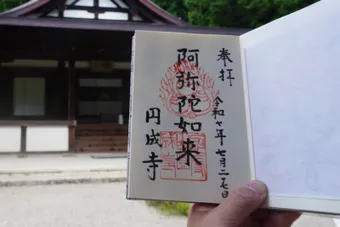 奉拝
令和七年七月二七日
阿弥陀如来
円成寺